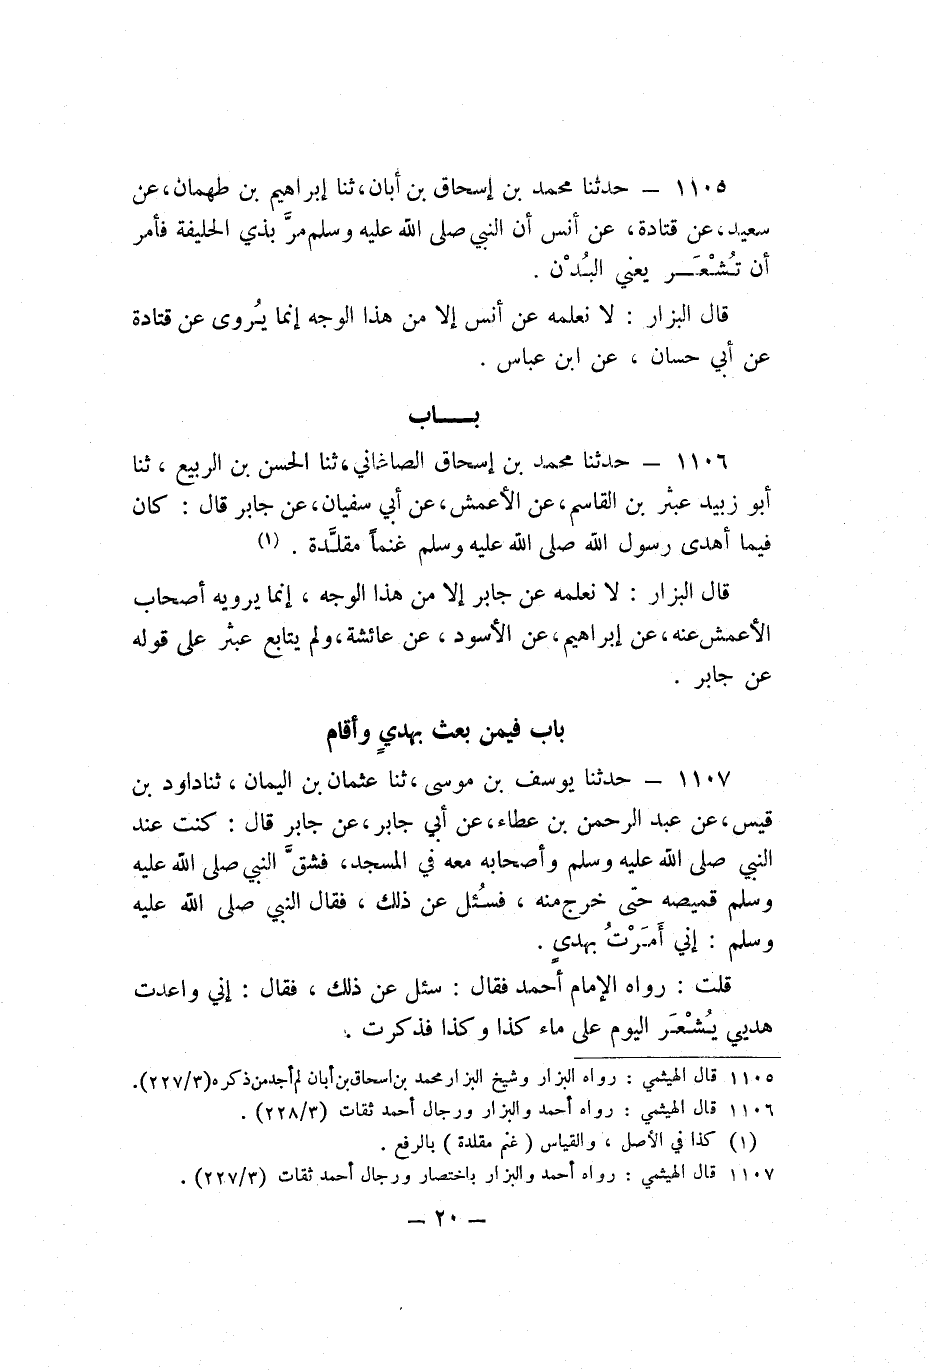 ١١٠٥ – حدثنا محمد بن إسحاق بن أبان، ثنا إبراهيم بن طهمان، عن
سعيد، عن قتادة، عن أنس أن النبي صلى الله عليه وسلم مرَّ بذي الحليفة فأمر
أن تُشْعَـــر يعني البُدْن .
قال البزار : لا نعلمه عن أنس إلا من هذا الوجه إنما يُروى عن قتادة
عن أبي حسان ، عن ابن عباس .
بـــاب
١١٠٦ – حدثنا محمد بن إسحاق الصاغاني، ثنا الحسن بن الربيع ، ثنا
أبو زبيد عبثر بن القاسم، عن الأعمش، عن أبي سفيان، عن جابر قال : كان
فيما أهدى رسول الله صلى الله عليه وسلم غنماً مقلَّدة . (١)
قال البزار : لا نعلمه عن جابر إلا من هذا الوجه ، إنما يرويه أصحاب
الأعمش عنه، عن إبراهيم، عن الأسود ، عن عائشة، ولم يتابع عبثر على قوله
عن جابر .
باب فيمن بعث بهديٍ وأقام
١١٠٧ – حدثنا يوسف بن موسى، ثنا عثمان بن اليمان ، ثنا داود بن
قيس، عن عبد الرحمن بن عطاء، عن أبي جابر، عن جابر قال : كنت عند
النبي صلى الله عليه وسلم وأصحابه معه في المسجد، فشقَّ النبي صلى الله عليه
وسلم قميصه حتى خرج منه ، فسُئل عن ذلك ، فقال النبي صلى الله عليه
وسلم : إني أَمَرْتُ بهديٍ .
قلت : رواه الإمام أحمد فقال : سئل عن ذلك ، فقال : إني واعدت
هديي يُشْعَر اليوم على ماء كذا وكذا فذكرت .
١١٠٥ قال الهيثمي : رواه البزار وشيخ البزار محمد بن اسحاق بن أبان لم أجد من ذكره (٢٢٧/٣).
١١٠٦ قال الهيثمي : رواه أحمد والبزار ورجال أحمد ثقات (٢٢٨/٣) .
(١) كذا في الأصل ، والقياس ( غنم مقلدة ) بالرفع .
١١٠٧ قال الهيثمي : رواه أحمد والبزار باختصار ورجال أحمد ثقات (٢٢٧/٣) .
– ٢٠ –